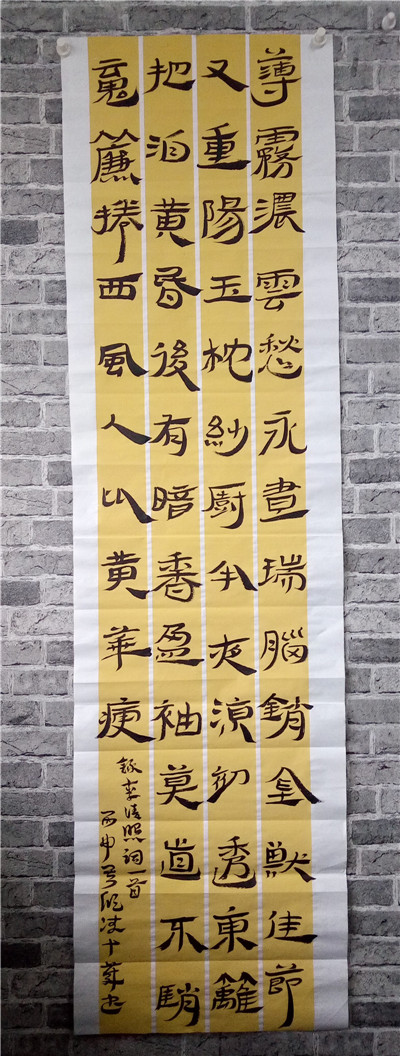 薄霧濃雲愁永晝瑞腦銷金獸佳節
又重陽玉枕紗廚半夜涼初透東籬
把酒黃昏後有暗香盈袖莫道不銷
魂簾捲西風人比黃華瘦
錄李清照詞一首
丙申